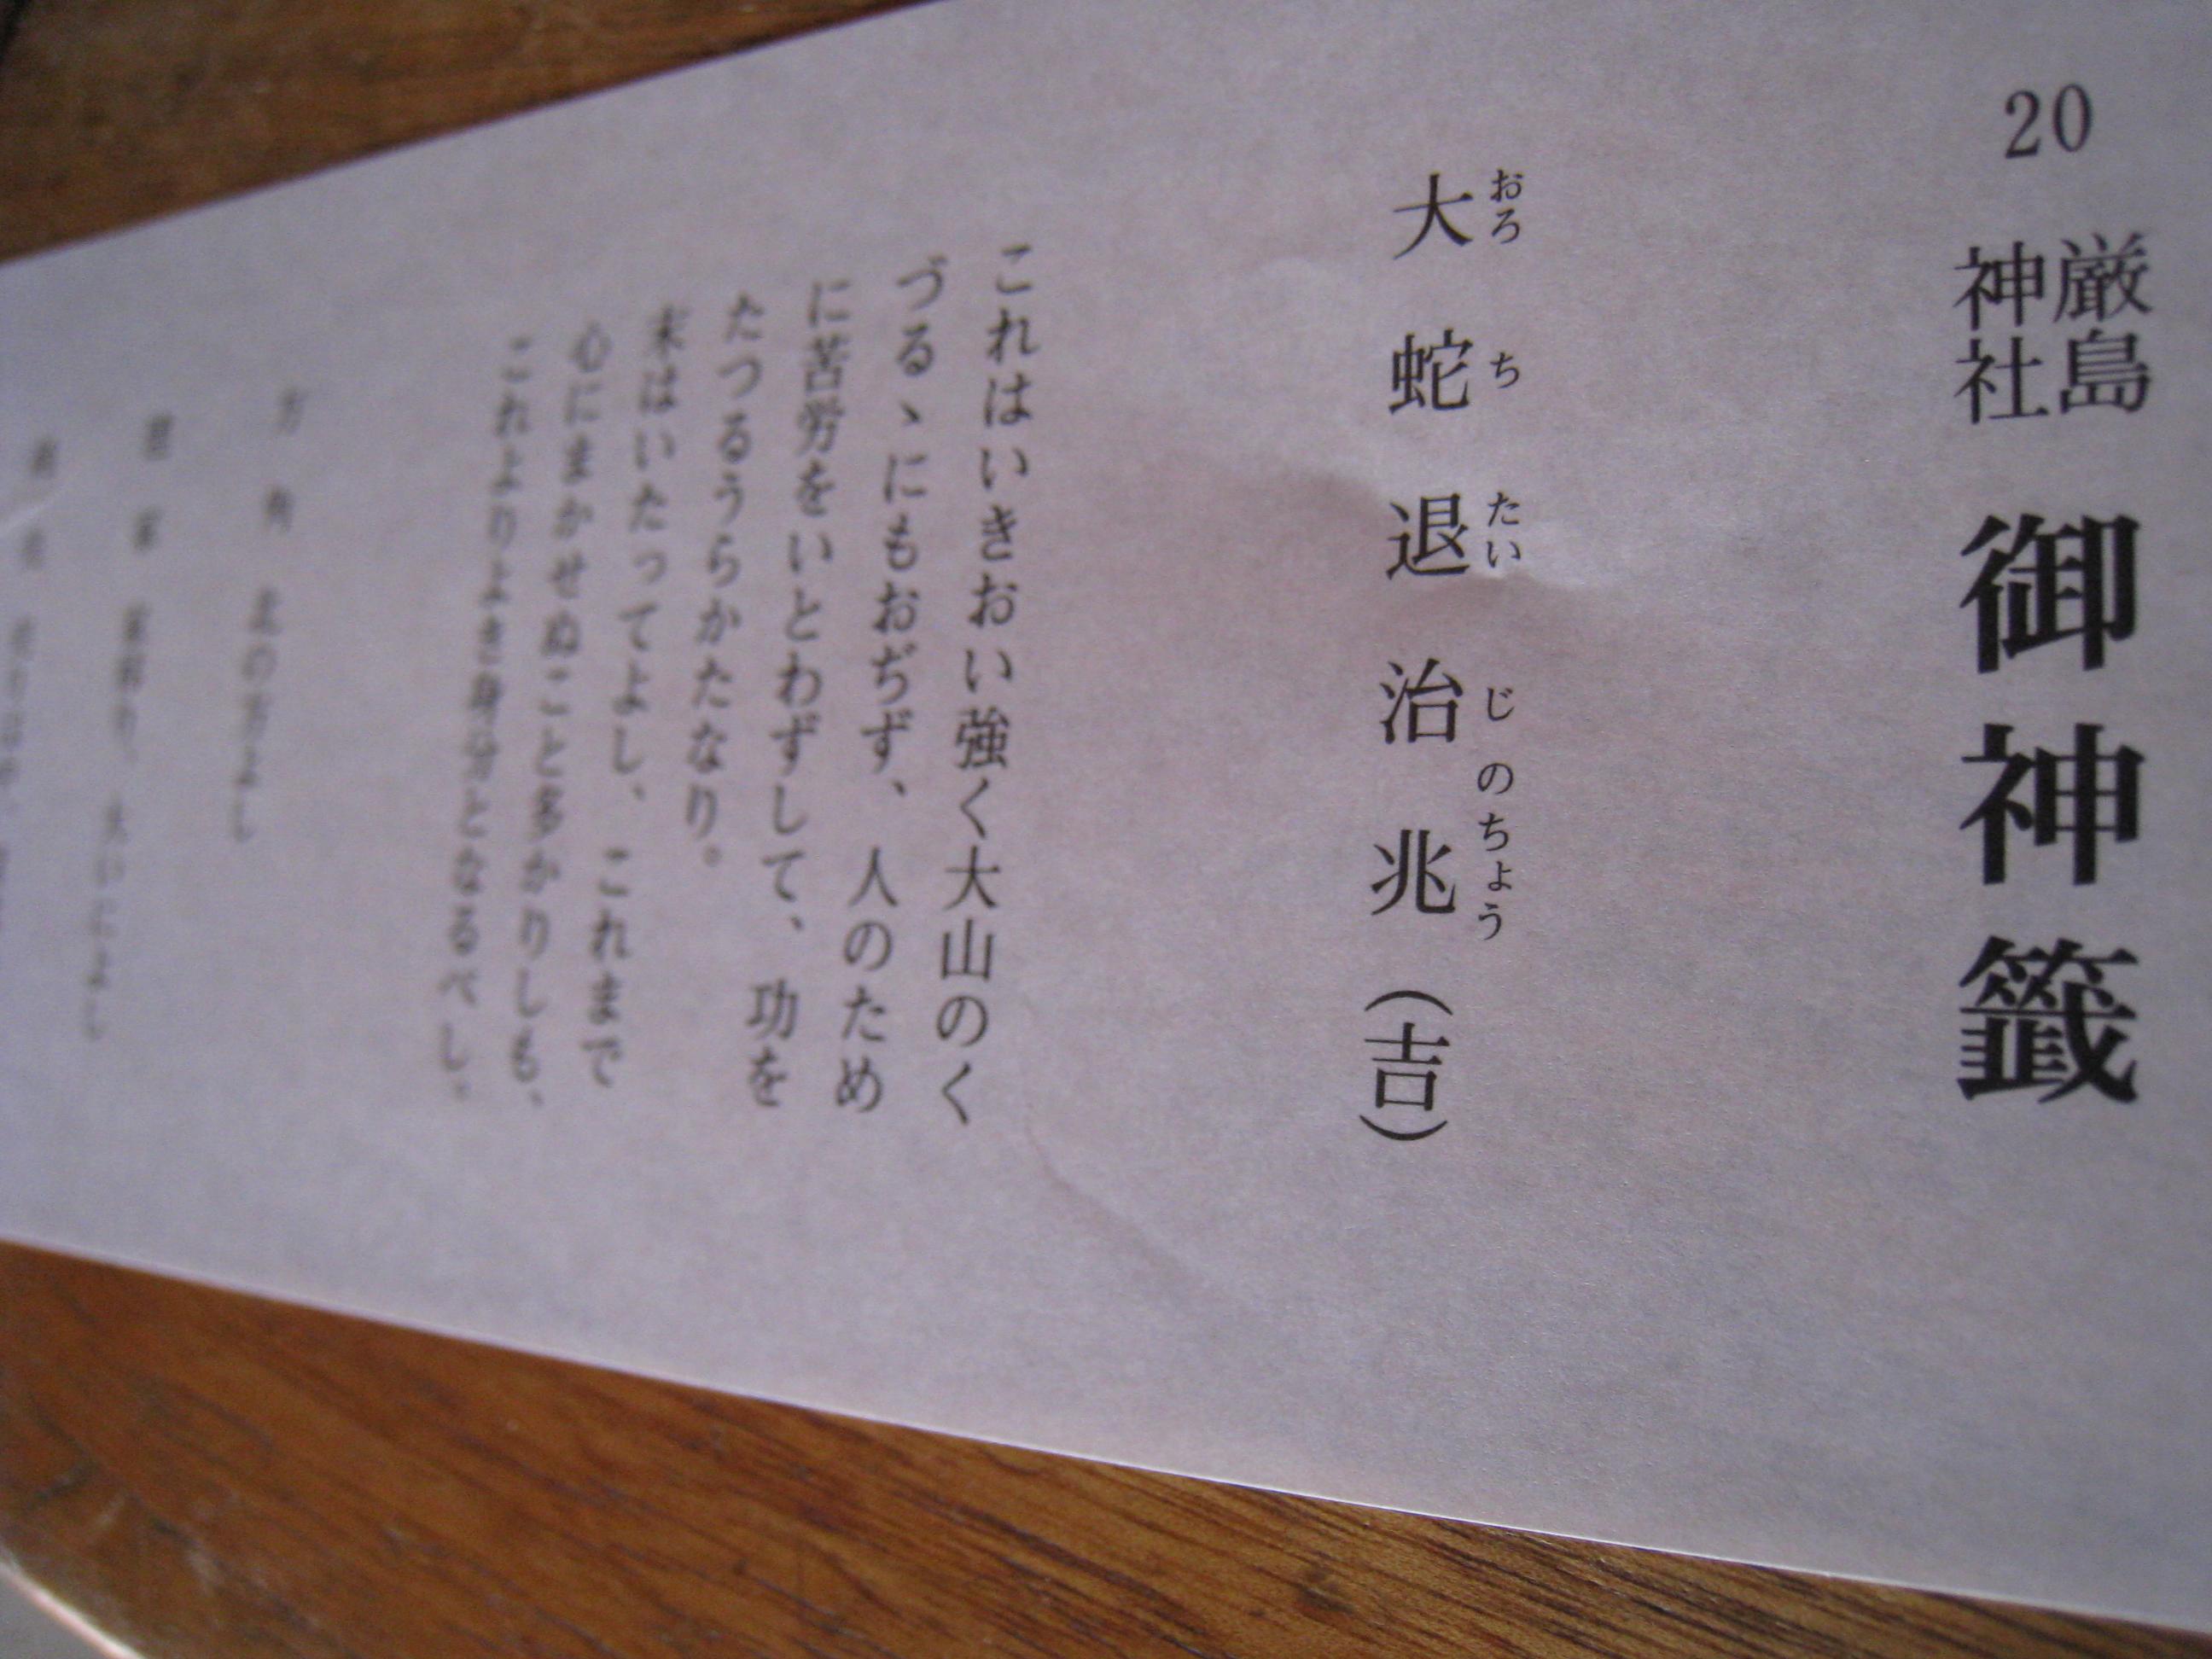 20
厳島
神社
御神籤
おろちたいじのちょう
大蛇退治兆(吉)
これはいきおい強く大山のく
づるゝにもおぢず、人のため
に苦労をいとわずして、功を
たつるうらかたなり。
末はいたってよし、これまで
心にまかせぬこと多かりしも、
これよりよき身分となるべし。
方角 北の方よし